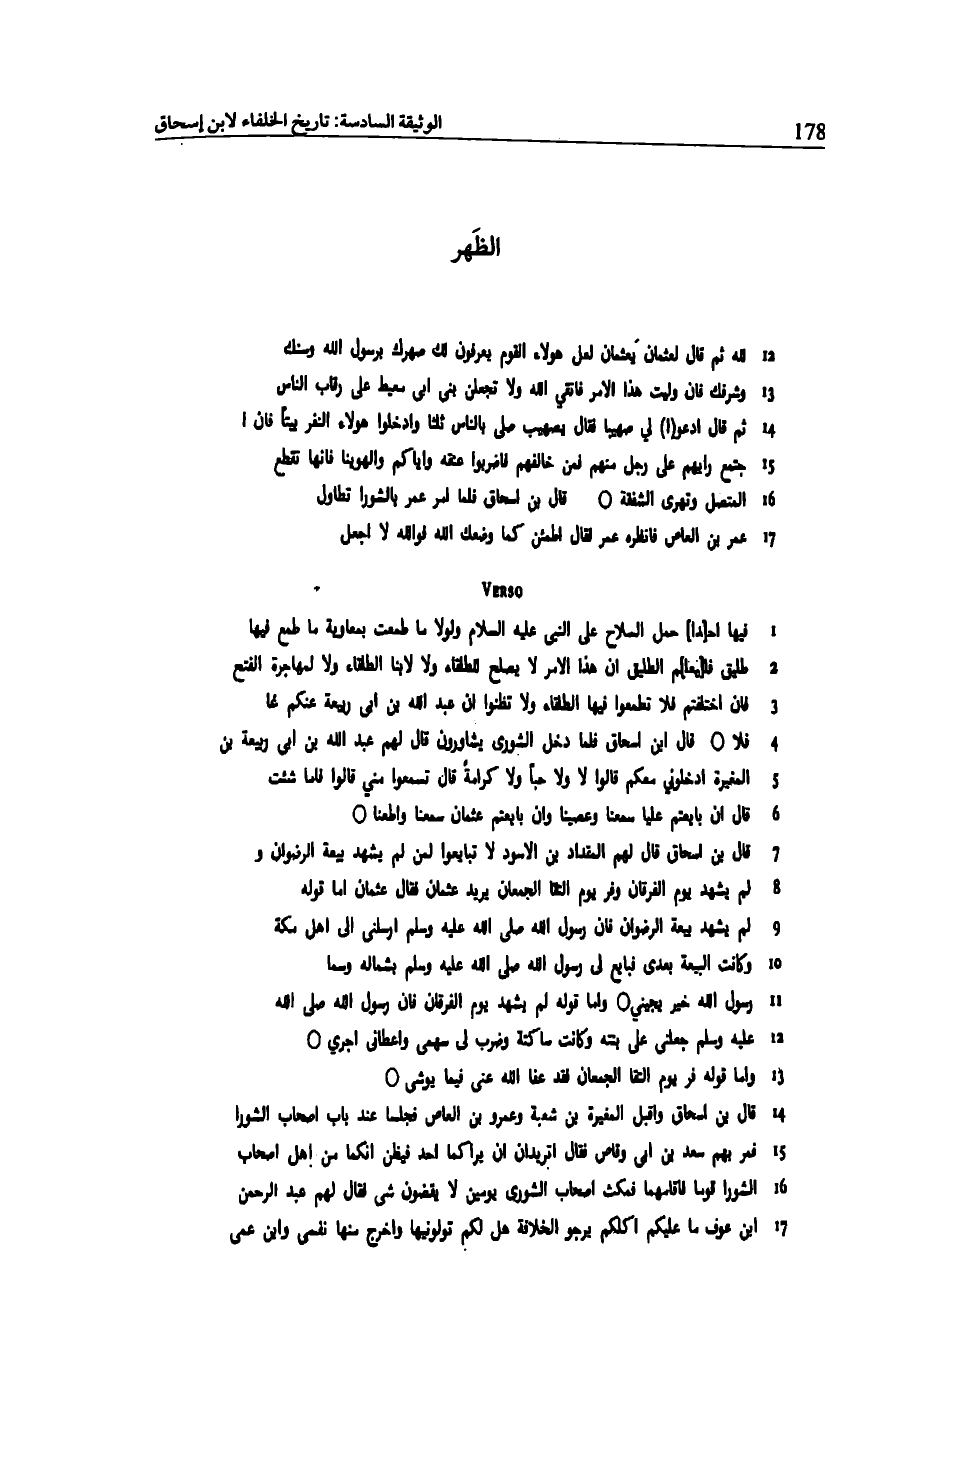 178 الوثيقة السادسة: تاريخ الخلفاء لابن إسحاق
الظَهر
12 لله ثم قال لعثمان يٰعثمان لعل هولاء القوم يعرفون لك صهرك برسول الله وسنك
13 وشرفك فان وليت هذا الامر فاتقي الله ولا تجعلن بني ابي معيط على رقاب الناس
14 ثم قال ادعو(ا) لي صهيبا فقال يصهيب صلي بالناس ثلثا وادخلوا هولاء النفر بيتاً فان ا
15 جتمع رايهم على رجل منهم فمن خالفهم فاضربوا عنقه واياكم والهوينا فانها تقطع
16 المتصل وتهرى الشفقة ○ قال بن اسحاق فلما امر عمر بالشورا تطاول
17 عمر بن العاص فانظره عمر لقال اطمئن كما وضعك الله فوالله لا اجعل
VERSO
1 فيها احـ[ـدا] حمل السلاح على النبي عليه السلام ولولا ما طمعت بمعاوية ما طمع فيها
2 طليق فلـ[ـيعلـ]ـم الطليق ان هذا الامر لا يصلح للطلقاء ولا لابنا الطلقاء ولا لمهاجرة الفتح
3 فان اختلفتم فلا تطمعوا فيها الطلقاء ولا تظنوا ان عبد الله بن ابي ربيعة عنكم غا
4 فلا ○ قال ابن اسحاق فلما دخل الشورى يشاورون قال لهم عبد الله بن ابي ربيعة بن
5 المغيرة ادخلوني معكم قالوا لا ولا حباً ولا كرامةً قال تسمعوا مني قالوا قاما شئت
6 قال ان بايعتم عليا سمعنا وعصينا وان بايعتم عثمان سمعنا واطعنا ○
7 قال بن اسحاق قال لهم المقداد بن الاسود لا تبايعوا لمن لم يشهد بيعة الرضوان و
8 لم يشهد يوم الفرقان وفر يوم التقا الجمعان يريد عثمان فقال عثمان اما قوله
9 لم يشهد بيعة الرضوان فان رسول الله صلى الله عليه وسلم ارسلني الى اهل مكة
10 وكانت البيعة بعدى فبايع لى رسول الله صلى الله عليه وسلم بشماله وسما
11 رسول الله خير يجيني ○ واما قوله لم يشهد يوم الفرقان فان رسول الله صلى الله
12 عليه وسلم جعلني على بنته وكانت ساكنة وضرب لى سهمى واعطانى اجري ○
13 واما قوله فر يوم التقا الجمعان فقد عفا الله عنى فيما يوشى ○
14 قال بن اسحاق واقبل المغيرة بن شعبة وعمرو بن العاص فجلسا عند باب اصحاب الشورا
15 فمر بهم سعد بن ابى وقاص فقال اتريدان ان يراكما احد فيظن انكما من إهل اصحاب
16 الشورا قوما فاقامهما فمكث اصحاب الشورى يومين لا يقضون شى فقال لهم عبد الرحمن
17 ابن عوف ما عليكم اكلكم يرجو الخلافة هل لكم تولونيها واخرج منها نفسى وابن عمى